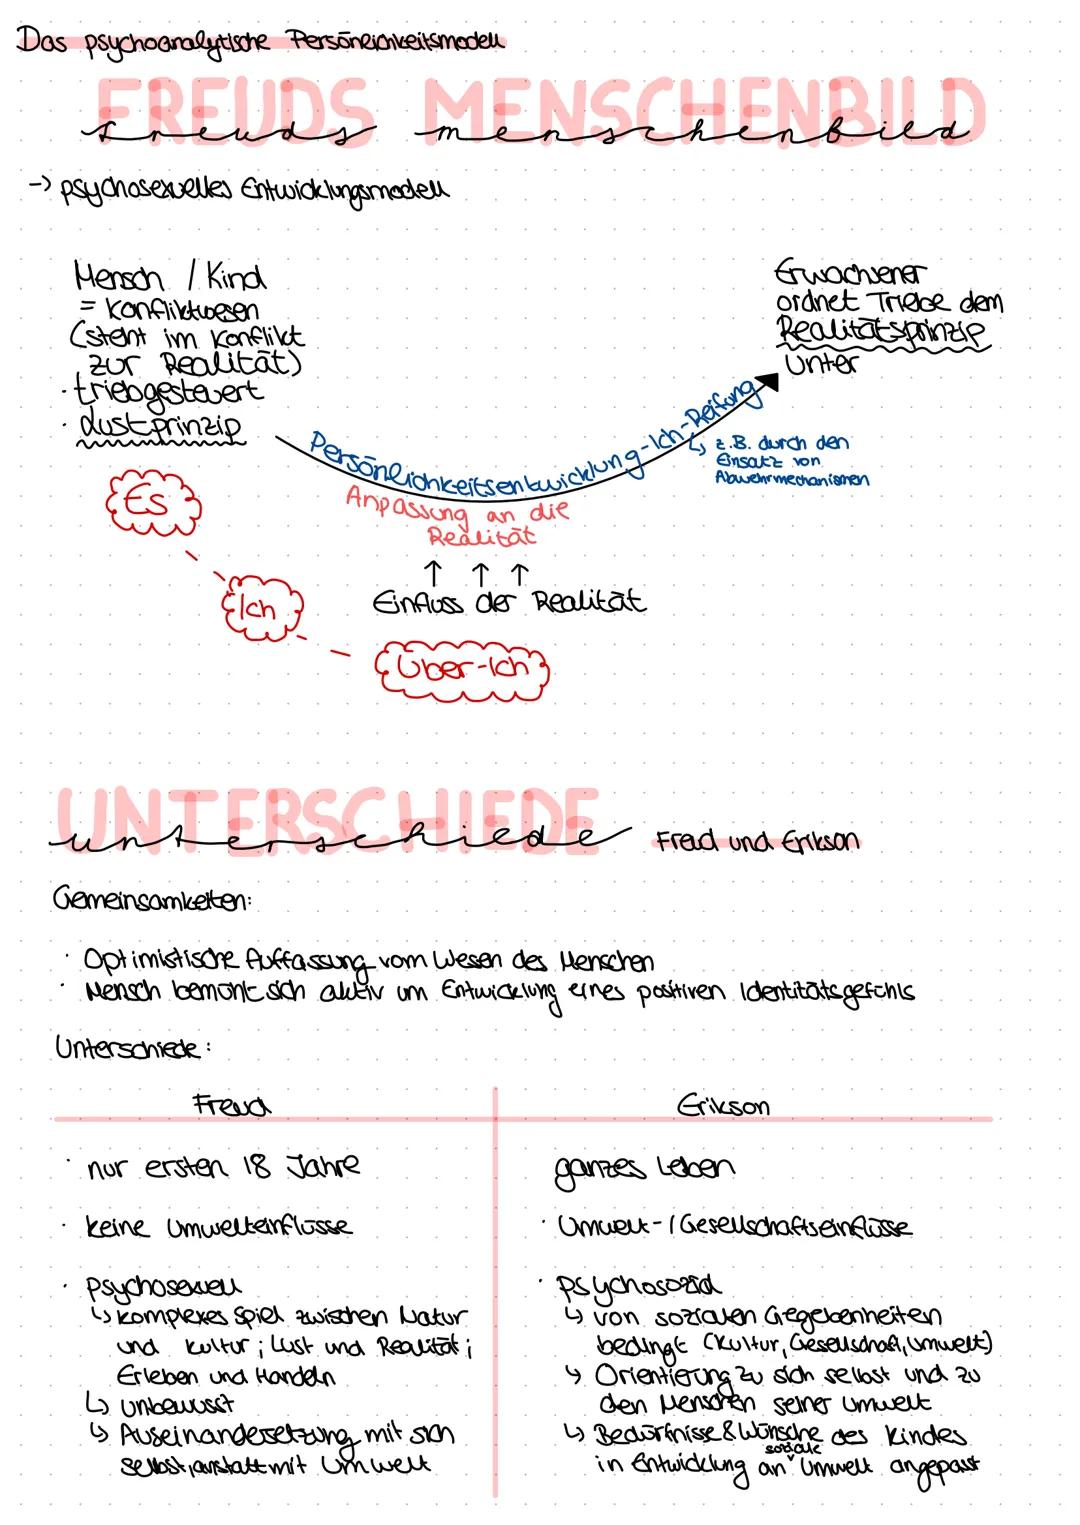 Das psychoanalytische Persönlichkeitsmodell
FREUDS MENSCHENBILD
freuds menschenbild
-> psychosexuelles Entwicklungsmodell
Mensch / Kind
= Konfliktwesen
(steht im Konflikt
zur Realität)
· triebgesteuert
· Lustprinzip
Erwachsener
ordnet Triebe dem
Realitätsprinzip
unter
Persönlichkeitsentwicklung-Ich-Reifung
↳ z.B. durch den
Einsatz von
Abwehrmechanismen
Anpassung an die
Realität
↑ ↑ ↑
Einfluss der Realität
Es
Ich
Über-Ich
UNTERSCHIEDE
unterschiede
Freud und Erikson
Gemeinsamkeiten:
· Optimistische Auffassung vom Wesen des Menschen
· Mensch bemüht sich aktiv um Entwicklung eines positiven Identitätsgefühls
Unterschiede:
Freud
· nur ersten 18 Jahre
· keine Umwelteinflüsse
· Psychosexuell
↳ komplexes Spiel zwischen Natur
und Kultur; Lust und Realität;
Erleben und Handeln
↳ unbewusst
↳ Auseinandersetzung mit sich
selbst, anstatt mit Umwelt
Erikson
ganzes Leben
· Umwelt-/Gesellschaftseinflüsse
· psychosozial
↳ von sozialen Gegebenheiten
bedingt (Kultur, Gesellschaft, Umwelt)
↳ Orientierung zu sich selbst und zu
den Menschen seiner Umwelt
↳ Bedürfnisse & Wünsche des Kindes
in Entwicklung an soziale Umwelt angepasst